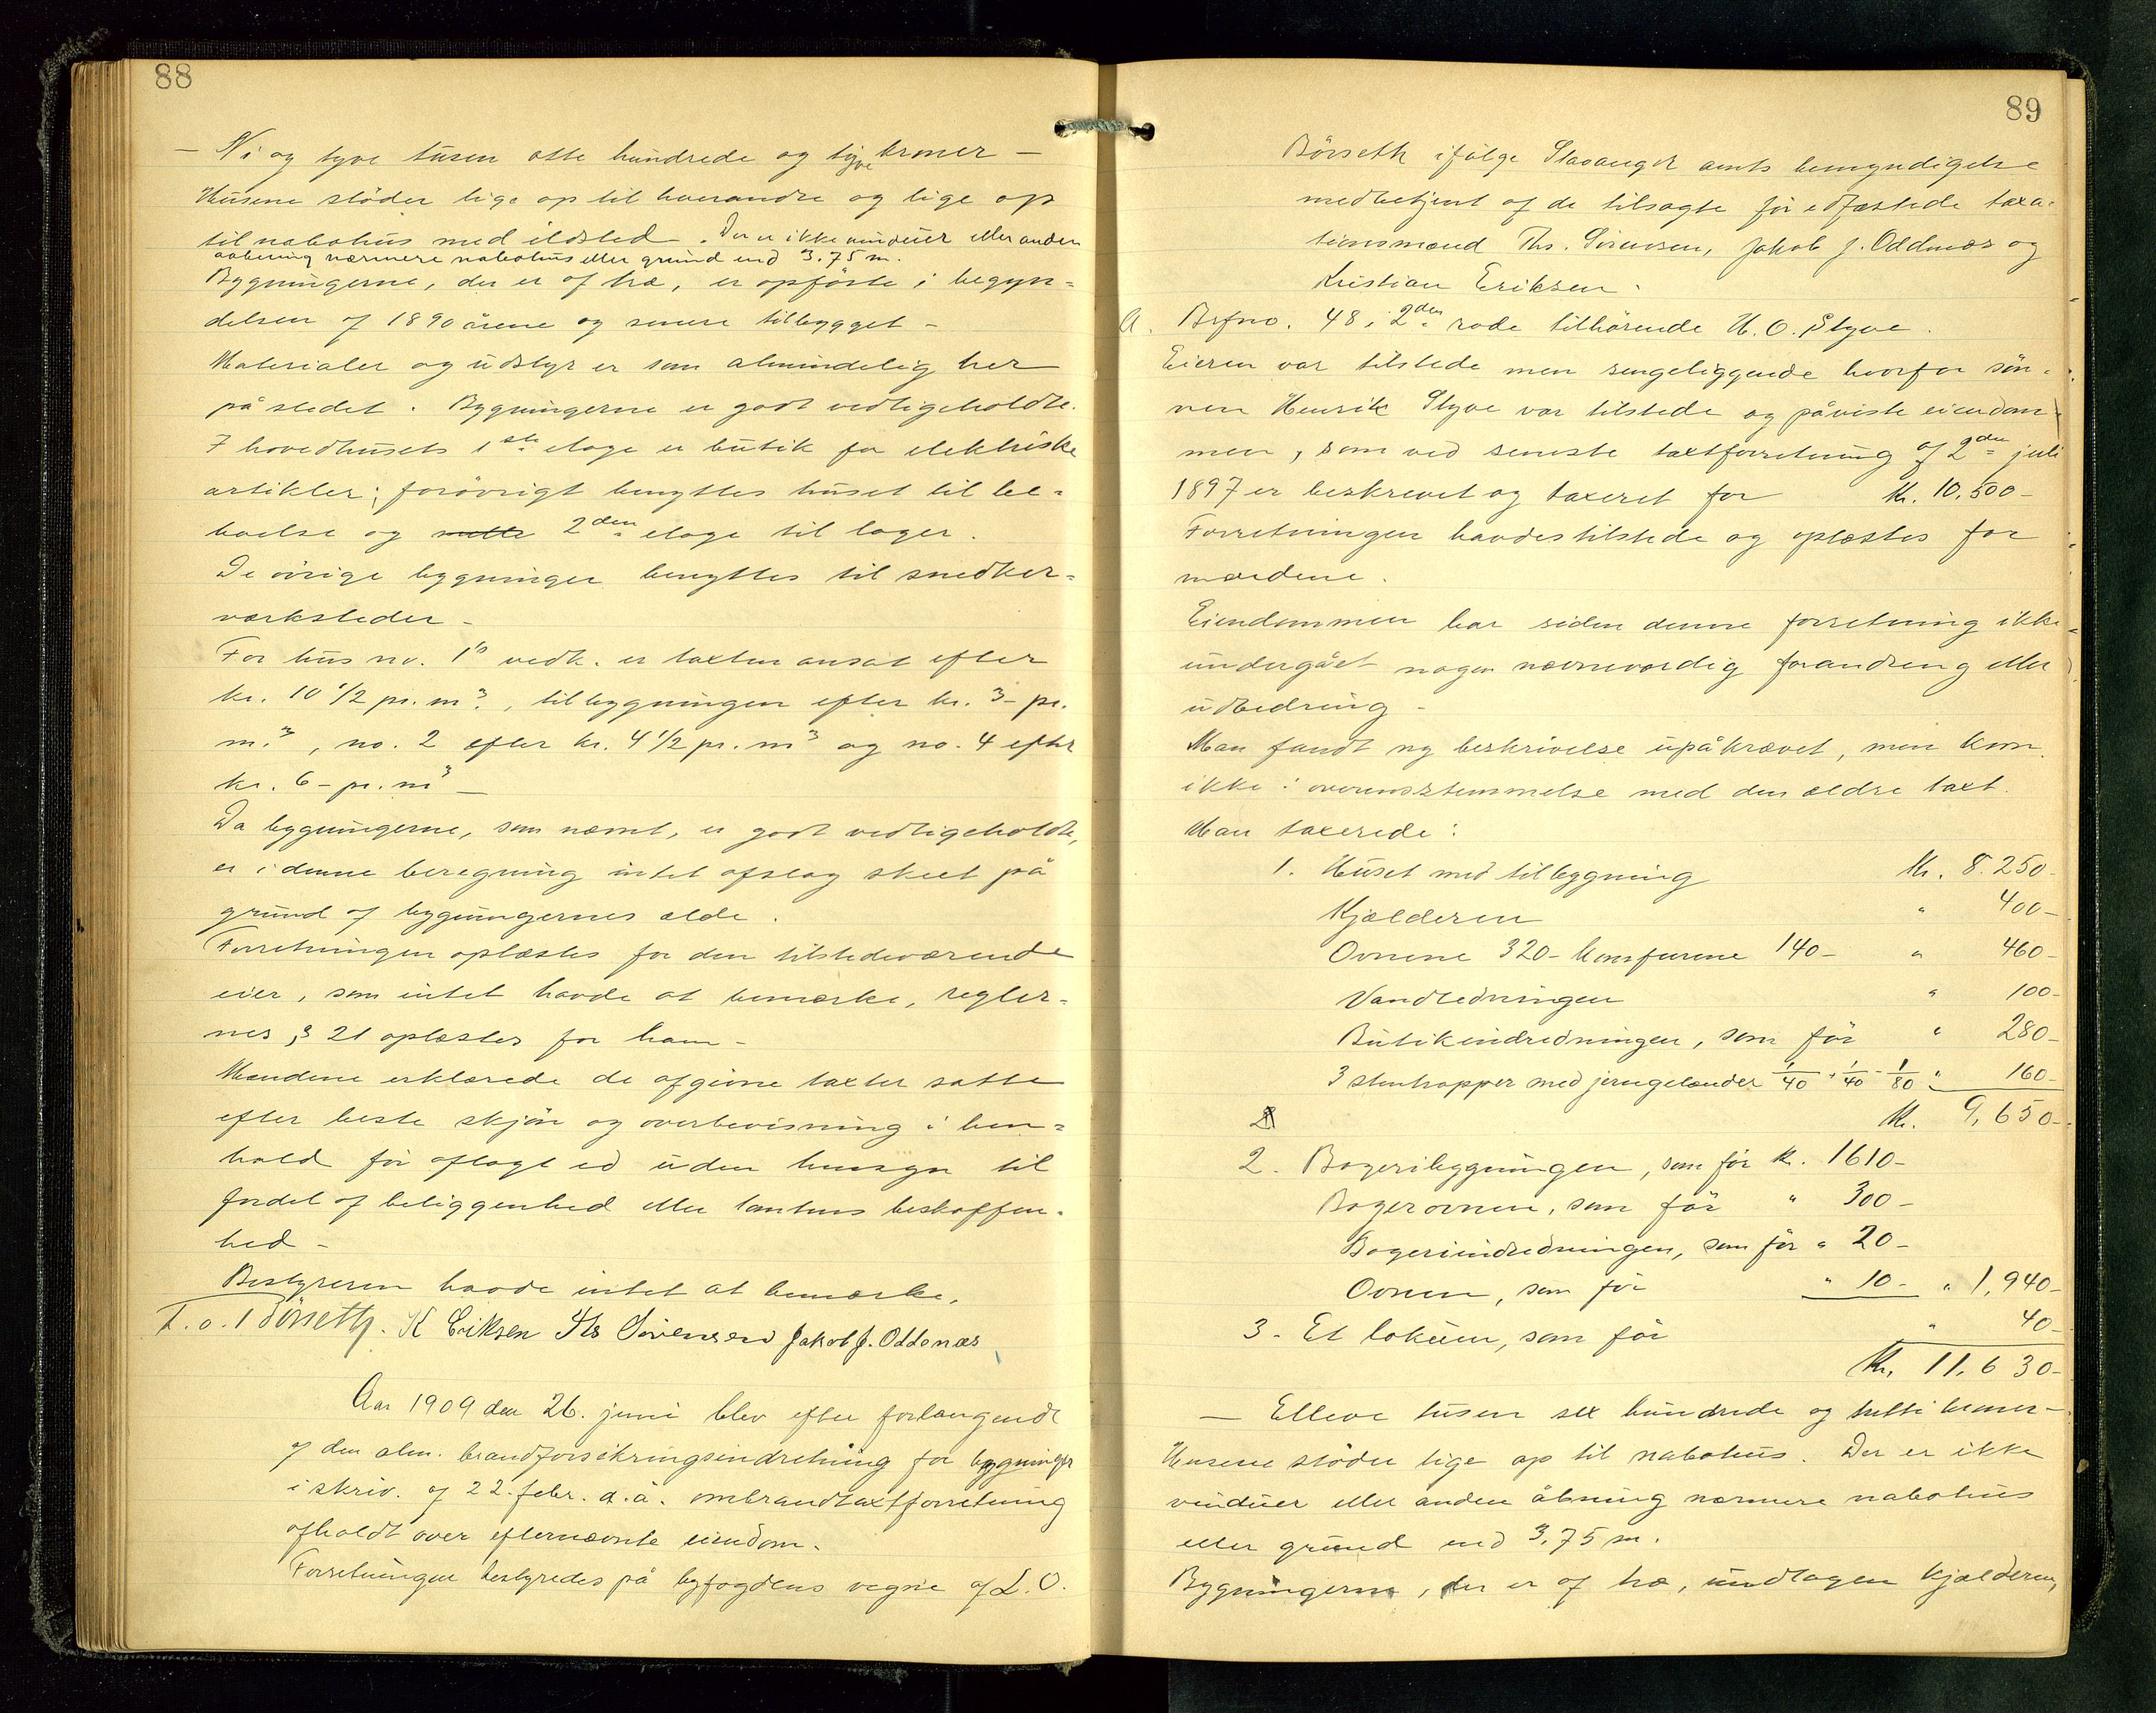 88
— Ni og tyve tusen otte hundrede og tyve kroner —
Husene stöder lige op til hverandre og lige op
til nabohus med ildsted. Der er ikke vinduer eller anden
aabning nærmere nabohus eller grund end 3.75 m.
Bygningerne, der er af træ, er opförte i begyn=
delsen af 1890 årene og senere tilbygget –
Materialer og udstyr er som almindelig her
på stedet. Bygningerne er godt vedligeholdte.
I hovedhusets 1ste etage er butik for elektriske
artikler; forövrigt benyttes huset til be=
boelse og 2den etage til lager.
De övrige bygninger benyttes til snedker=
værksteder –
For hus no. 1s vedk. er taxten ansat efter
kr. 10 1/2 pr. m3., tilbygningen efter kr. 3– pr.
m.3, no. 2 efter kr. 4 1/2 pr. m3 og no. 4 efter
kr. 6– pr. m3 –
Da bygningerne, som nævnt, er godt vedligeholdte,
er i denne beregning intet afslag skeet på
grund af bygningernes ælde.
Forretningen oplæstes for den tilstedeværende
eier, som intet havde at bemærke, regler=
nes § 21 oplæstes for ham –
Mændene erklærede de afgivne taxter satte
efter beste skjön og overbevisning i hen=
hold för aflagt ed uden hensyn til
fordel af beliggenhed eller tomtens beskaffen=
hed –
Bestyreren havde intet at bemærke.
L. O. Börseth. K Eriksen Ths Sörensen Jakob J. Oddenæs
Aar 1909 den 26. juni blev efter forlangende
af den alm. brandforsikringsindretning for bygninger
i skriv. af 22. febr. d. å. ombrandtaxtforretning
afholdt over efternævnte eiendom.
Forretningen bestyredes på byfogdens vegne af L. O.
89
Börseth ifölge Stavanger amts bemyndigelse
medbetjent af de tilsagte för edfæstede taxa=
tionsmænd Ths. Sörensen, Jakob J. Oddenæs og
Kristian Eriksen.
a. Brfno. 48 i 2den rode tilhörende H. O. Styve.
Eieren var tilstede men sengeliggende hvorfor sön=
nen Henrik Styve var tilstede og påviste eiendom=
men, som ved seneste taxtforretning af 2den juli
1897 er beskrevet og taxeret for Kr. 10,500–
Forretningen havdes tilstede og oplæstes for
mændene.
Eiendommen har siden denne forretning ikke
undergået nogen nævneværdig forandring eller
udbedring –
Man fandt ny beskrivelse upåkrævet, men kom
ikke i overensstemmelse med den ældre taxt.
Man taxerede:
1. Huset med tilbygning Kr. 8.250–
Kjælderen " 400–
Ovnene 320– komfurene 140– " 460–
Vandledningen " 100–
Butikindredningen, som för " 280–
3 stentrapper med jerngelænder 1/40 + 1/40 – 1/80 " 160–
Kr. 9,650–
2. Bageribygningen, som för kr. 1610–
Bagerovnen, som för " 300–
Bageriindredningen, som för " 20–
Ovnen, som för " 10– " 1,940–
3. Et lokum, som för " 40–
Kr. 11,630–
— Elleve tusen sex hundrede og tretti kroner –
Husene stöder lige op til nabohus. Der er ikke
vinduer eller anden åbning nærmere nabohus
eller grund end 3,75 m.
Bygningerne, der er af træ, undtagen kjælderen,